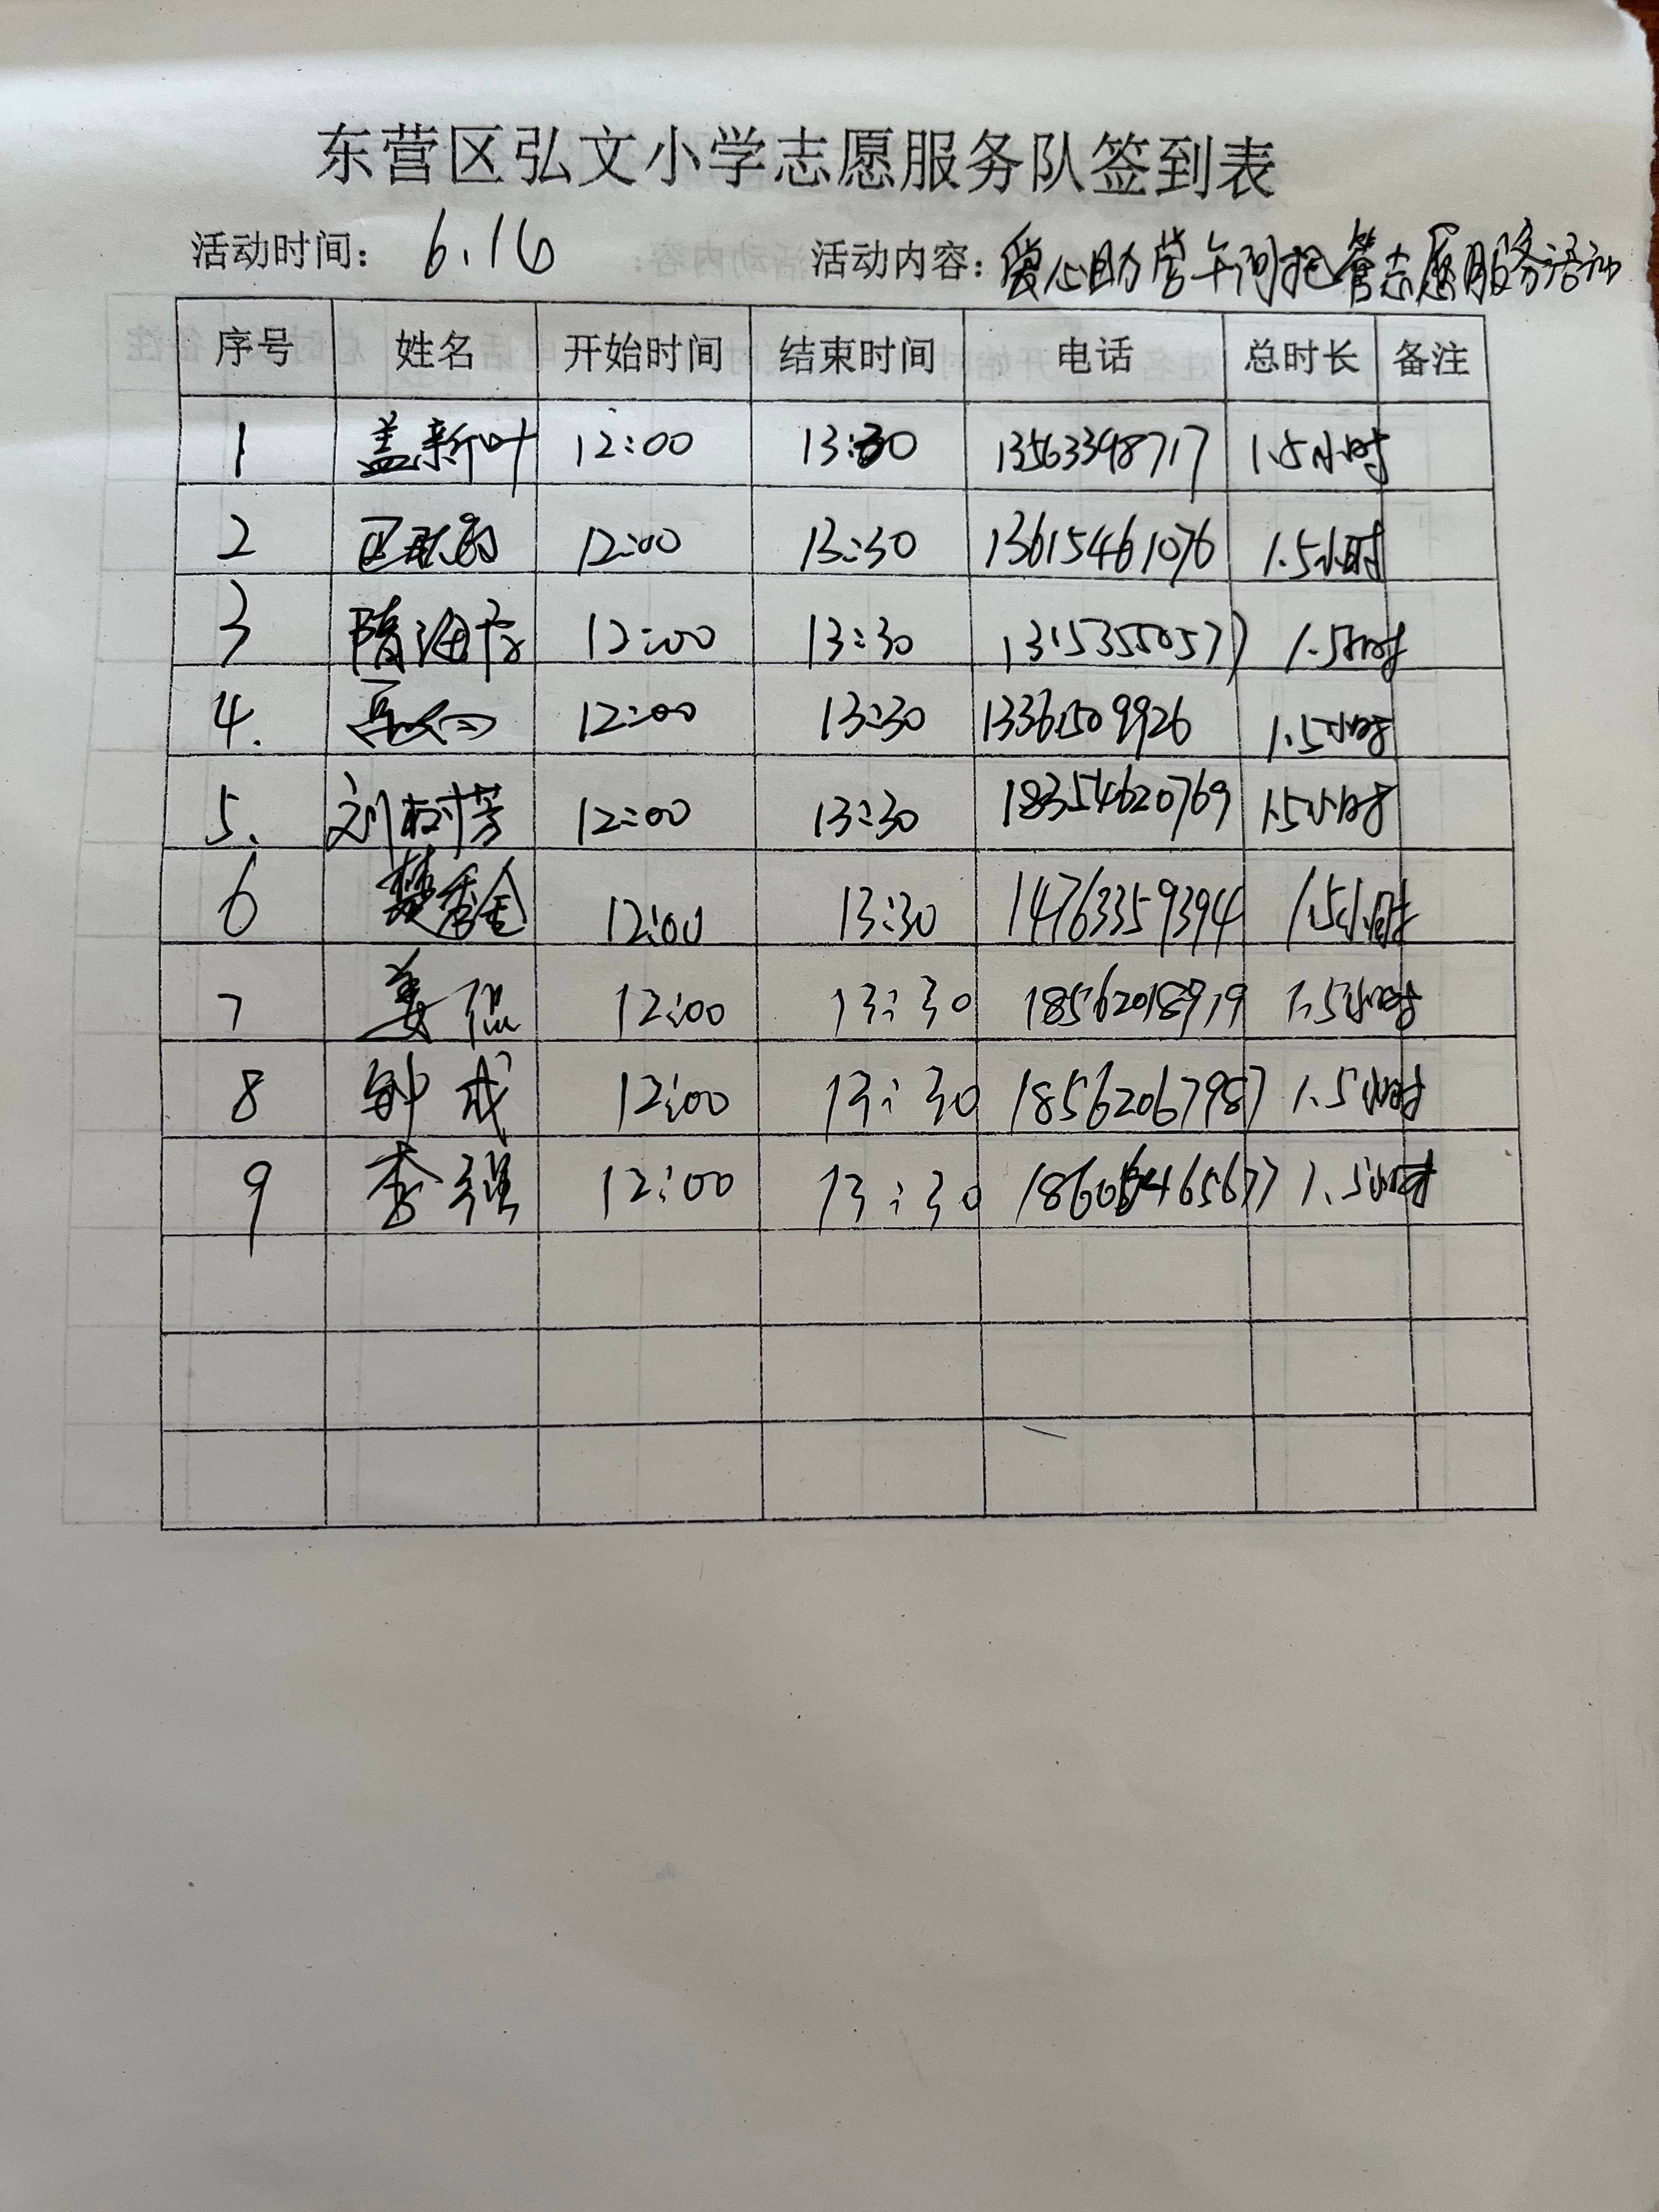 东营区弘文小学志愿服务队签到表
活动时间: 6.16 活动内容: 爱心助学午间托管志愿服务活动
序号 姓名 开始时间 结束时间 电话 总时长 备注
1 盖新叶 12:00 13:30 13563398717 1.5小时
2 12:00 13:30 13615461076 1.5小时
3 隋海 12:00 13:30 1.5小时
4. 12:00 13:30 13361509926 1.5小时
5. 刘树芳 12:00 13:30 18354620769 1.5小时
6 楚秀金 12:00 13:30 14763359394 1.5小时
7 姜 12:00 13:30 18562018919 1.5小时
8 钟成 12:00 13:30 18562067987 1.5小时
9 李强 12:00 13:30 18605465677 1.5小时